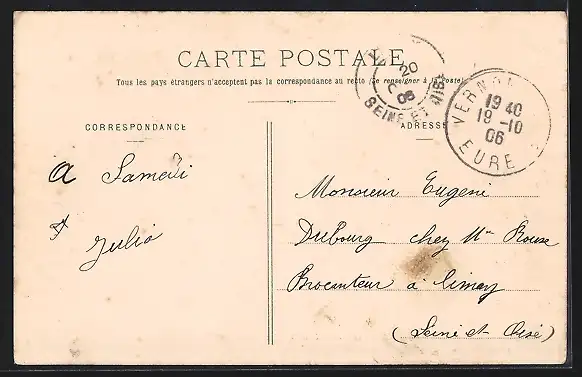 CARTE POSTALE
Tous les pays étrangers n'acceptent pas la correspondance au recto (Se renseigner à la Poste)
CORRESPONDANCE
ADRESSE
20
06
SEINE ET
VERNO
19 40
19 -10
06
EURE
a Samedi
Julia
Monsieur Eugene
Dubourg chez Mr Rouse
Brocanteur à Limay
(Seine et Oise)